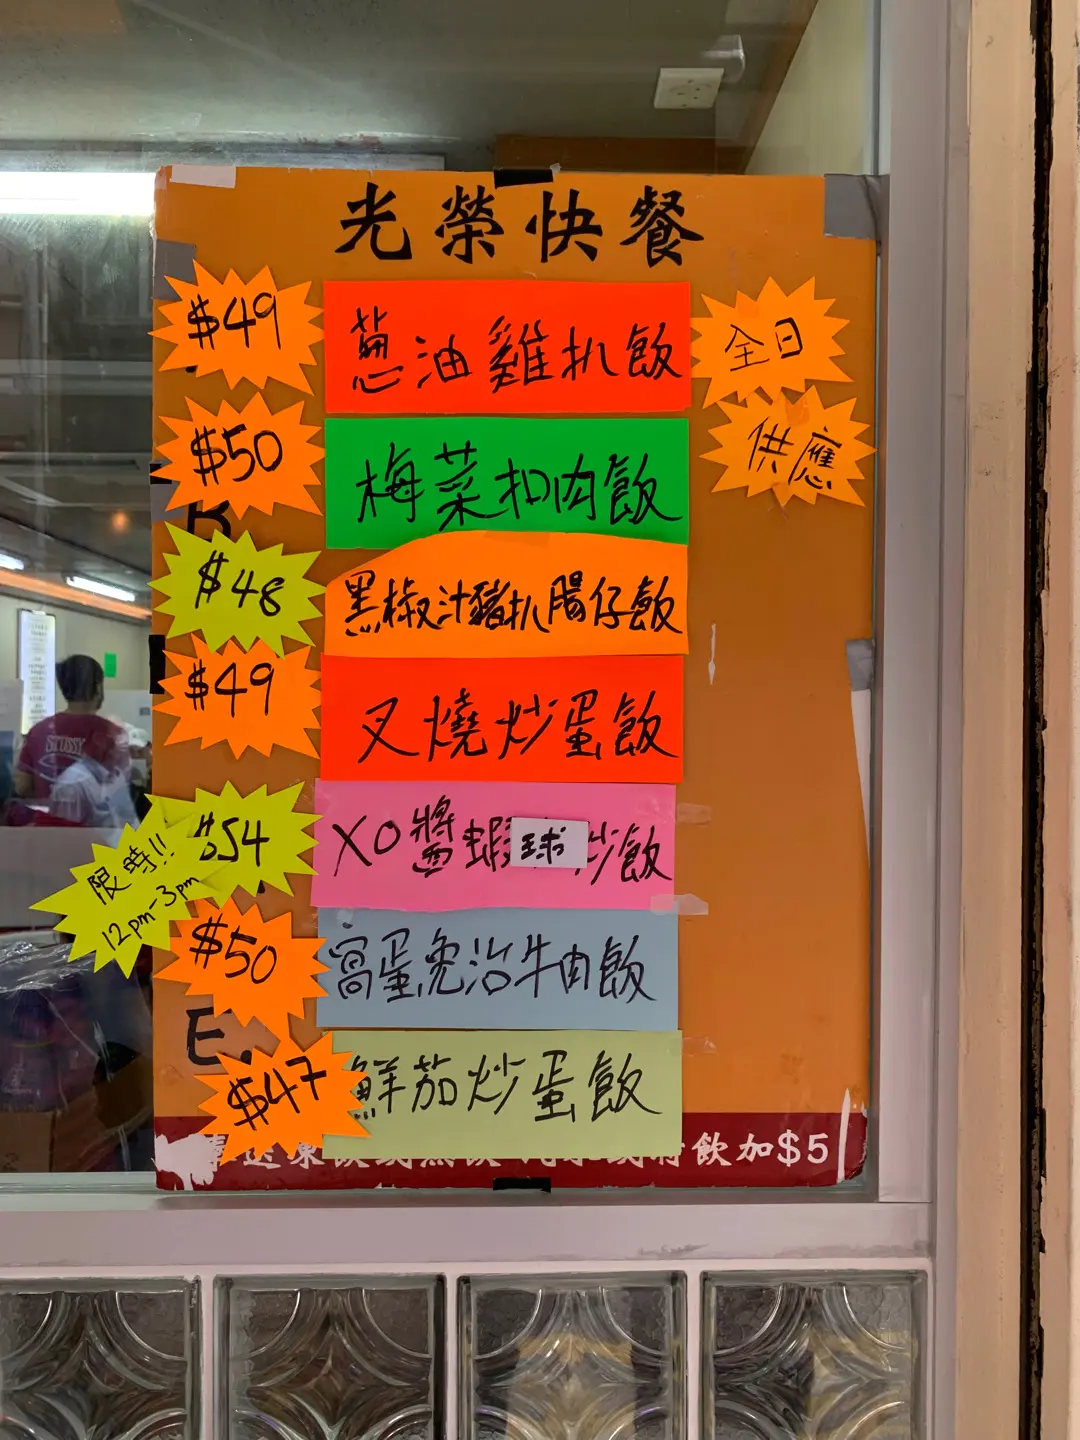 光榮快餐
$49 蔥油雞扒飯 全日
$50 梅菜扣肉飯 供應
$48 黑椒汁豬扒腸仔飯
$49 叉燒炒蛋飯
$54 XO醬蝦球炒飯
限時!!
12pm-3pm
$50 窩蛋免治牛肉飯
$47 鮮茄炒蛋飯
飲加$5
E.
STUSSY